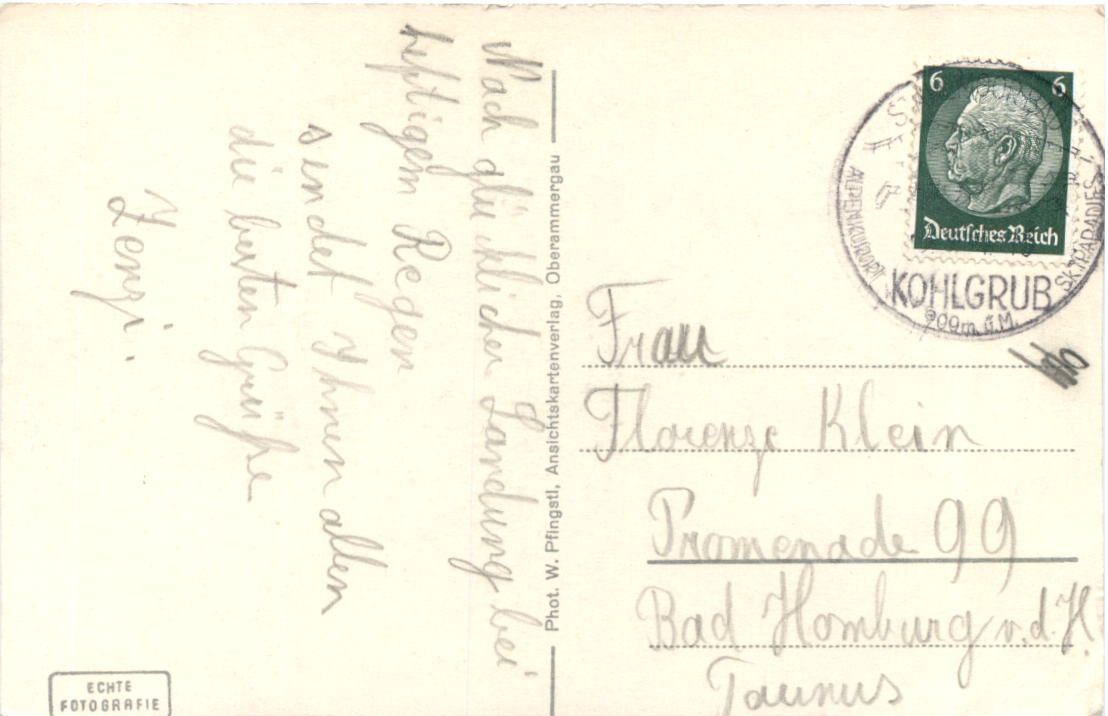 Nach glücklicher Landung bei
heftigem Regen
sendet Ihnen allen
die besten Grüße
Zenzi.
Phot. W. Pfingstl, Ansichtskartenverlag, Oberammergau
ECHTE
FOTOGRAFIE
6 6
Deutsches Reich
ALPENKURORT
SKIPARADIES
KOHLGRUB
900m ü.M.
Frau
Florenze Klein
Promenade 99
Bad Homburg v.d.H.
Taunus